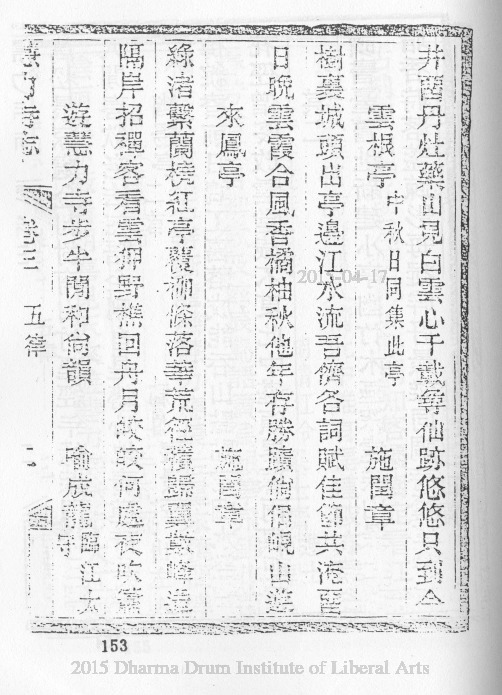 井留丹灶藥山見白雲心千載尋仙跡悠悠只到今
雲根亭 中秋日同集此亭 施閏章
樹裏城頭出亭邊江水流吾儕各詞賦佳節共淹留
日晚雲霞合風香橘柚秋他年存勝蹟俯仰峴山遊
來鳳亭 施閏章
綠渚繫蘭橈紅亭覆柳條落華荒徑積歸鳥數峰遙
隔岸招禪客看雲狎野樵回舟月皎皎何處夜吹簫
遊慧力寺步牛閒和尚韻 喻成龍 臨江太守
慧力寺志 卷三 五律 二
153
2015-04-17
2015 Dharma Drum Institute of Liberal Arts